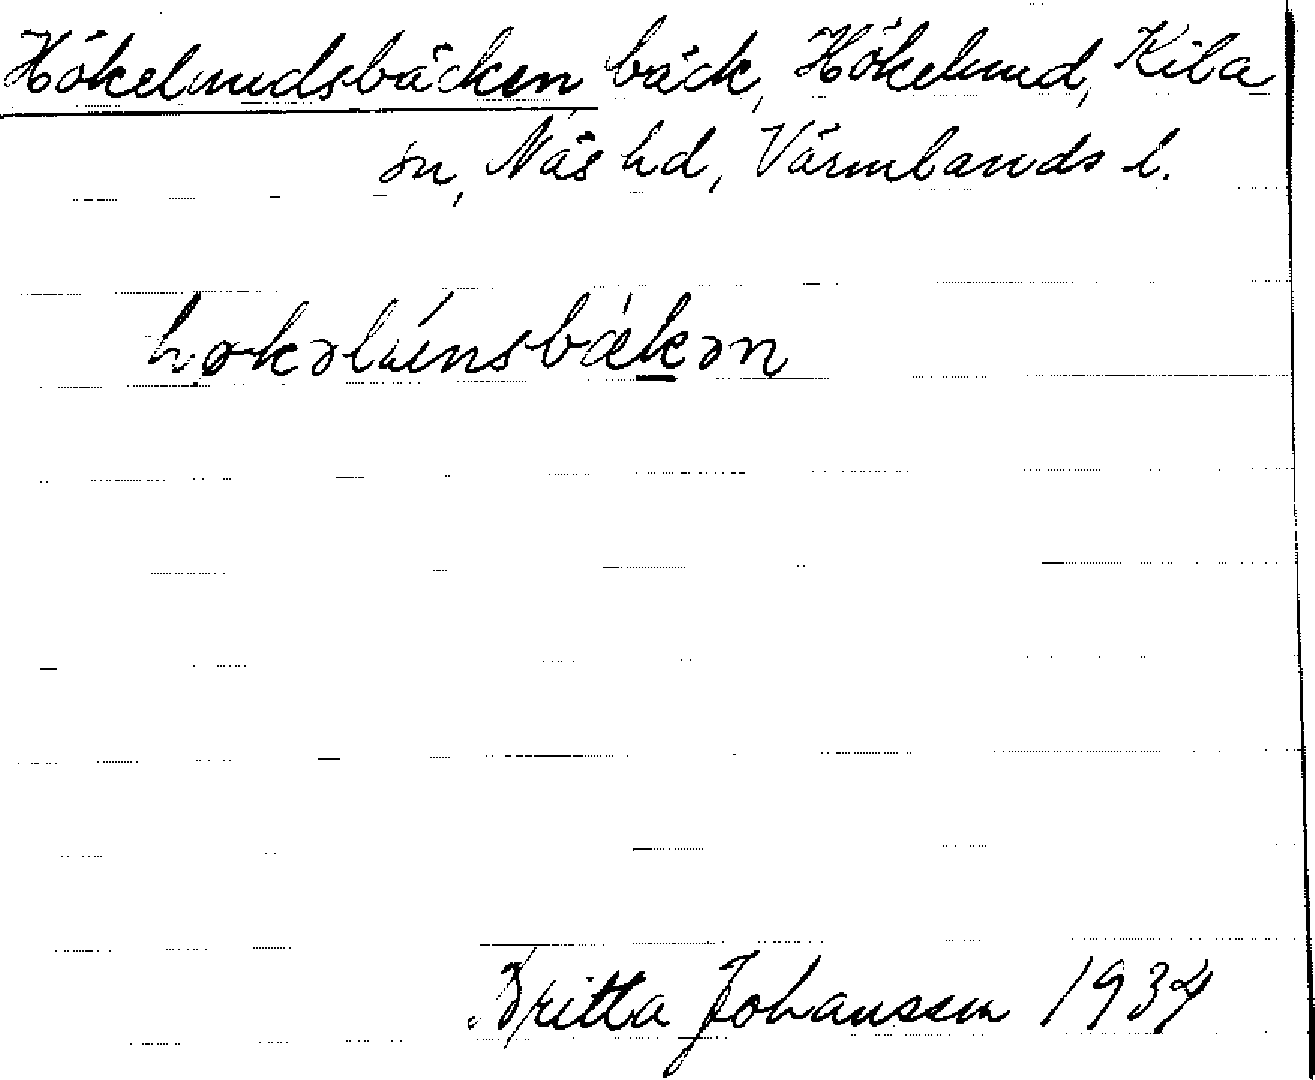 Hökelundsbäcken bäck, Hökelund, Kila
sn, Näs hd, Värmlands l.
Britta Johansson 1934